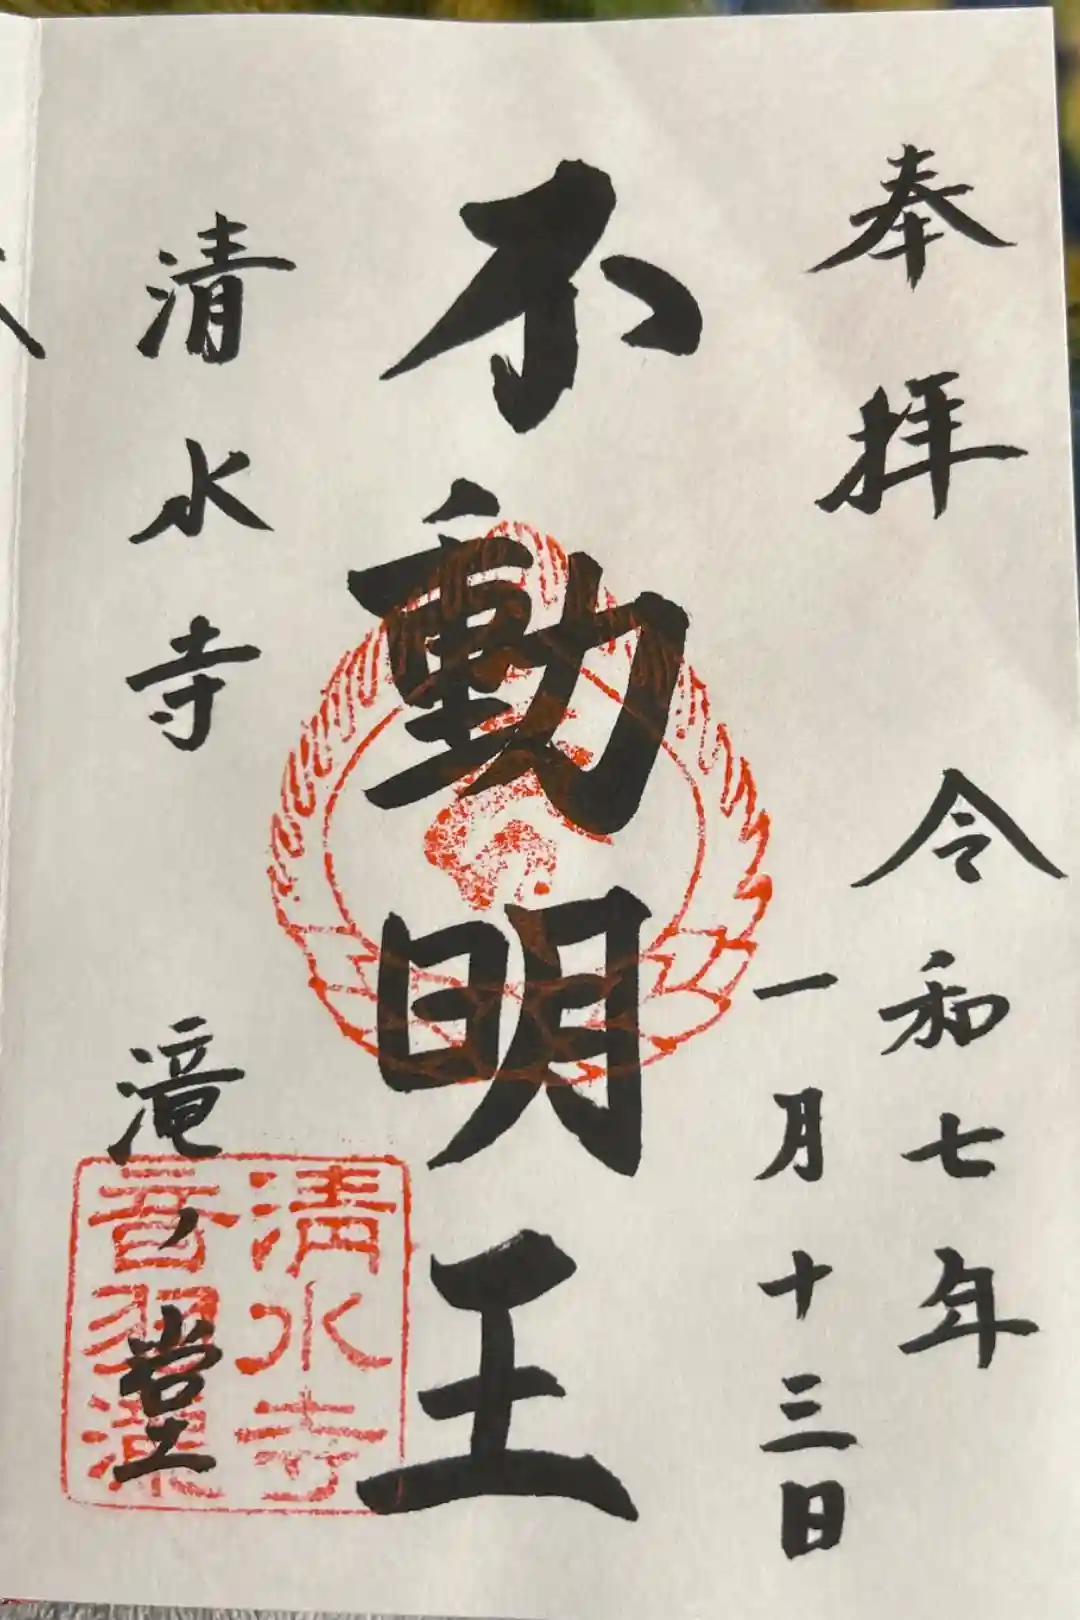 奉拝
令和七年
一月十三日
不動明王
清水寺
滝ノ堂
清水寺
音羽瀧